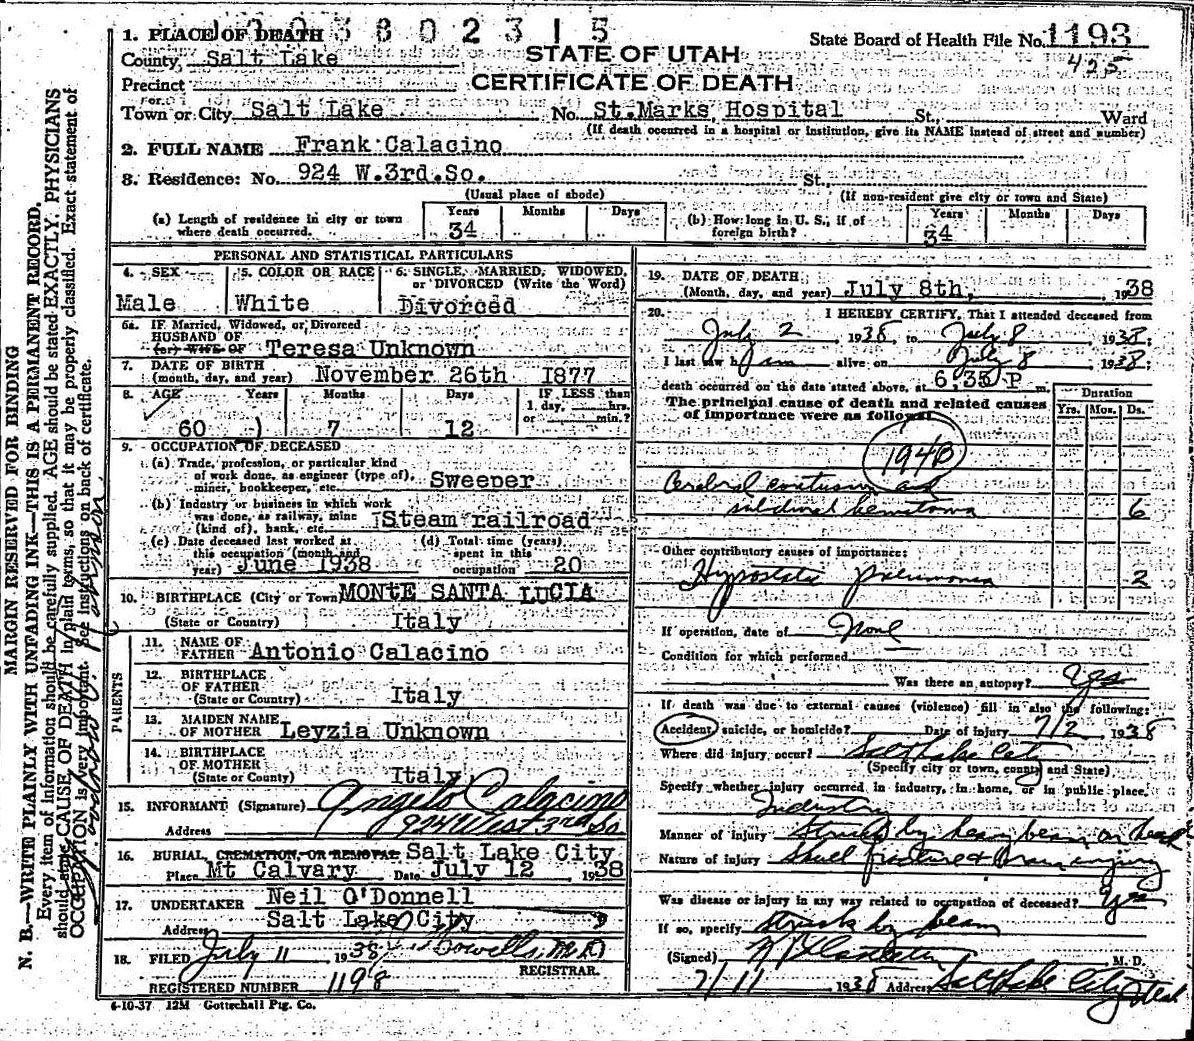 1938802315
1. PLACE OF DEATH
County, Salt Lake
Precinct
Town or City Salt Lake
STATE OF UTAH
CERTIFICATE OF DEATH
State Board of Health File No. 1193
425
No. St.Marks Hospital St., Ward
(If death occurred in a hospital or institution, give its NAME instead of street and number)
2. FULL NAME Frank Calacino
3. Residence: No. 924 W.3rd.So. St.,
(Usual place of abode)
(If non-resident give city or town and State)
(a) Length of residence in city or town where death occurred. Years 34 Months Days
(b) How long in U. S., if of foreign birth? Years 34 Months Days
MARGIN RESERVED FOR BINDING
N. B.—WRITE PLAINLY WITH UNFADING INK—THIS IS A PERMANENT RECORD.
Every item of information should be carefully supplied. AGE should be stated EXACTLY. PHYSICIANS
should state CAUSE OF DEATH in plain terms, so that it may be properly classified. Exact statement of
OCCUPATION is very important. See instructions on back of certificate.
PERSONAL AND STATISTICAL PARTICULARS
4. SEX Male
5. COLOR OR RACE White
6. SINGLE, MARRIED, WIDOWED, or DIVORCED (Write the Word) Divorced
6a. IF Married, Widowed, or Divorced
HUSBAND OF
(or) WIFE OF Teresa Unknown
7. DATE OF BIRTH
(month, day, and year) November 26th 1877
8. AGE Years 60 Months 7 Days 12
IF LESS than 1 day, hrs. or min.?
9. OCCUPATION OF DECEASED
(a) Trade, profession, or particular kind of work done, as engineer (type of), miner, bookkeeper, etc. Sweeper
(b) Industry or business in which work was done, as railway, mine (kind of), bank, etc. Steam railroad
(c) Date deceased last worked at this occupation (month and year) June 1938
(d) Total time (years) spent in this occupation 20
10. BIRTHPLACE (City or Town) MONtE SANTA LUCIA
(State or Country) Italy
PARENTS
11. NAME OF FATHER Antonio Calacino
12. BIRTHPLACE OF FATHER (State or Country) Italy
13. MAIDEN NAME OF MOTHER Leyzia Unknown
14. BIRTHPLACE OF MOTHER (State or Country) Italy
15. INFORMANT (Signature) Angelo Calacino
Address 924 West 3rd So.
16. BURIAL, CREMATION, OR REMOVAL Salt Lake City
Place Mt Calvary Date July 12 1938
17. UNDERTAKER Neil O'Donnell
Address Salt Lake City
18. FILED July 11 1938
REGISTRAR.
REGISTERED NUMBER 1198
6-10-37 12M Gottschall Ptg. Co.
19. DATE OF DEATH
(Month, day, and year) July 8th, 1938
20. I HEREBY CERTIFY, That I attended deceased from
July 2 1938, to July 8 1938;
I last saw him alive on July 8 1938;
death occurred on the date stated above, at 6:35 P m.
The principal cause of death and related causes of importance were as follows:
Duration
Yrs. Mos. Ds.
194B
Cerebral contusion and
subdural hematoma 6
Other contributory causes of importance:
Hypostatic pneumonia 2
If operation, date of None
Condition for which performed
Was there an autopsy? Yes
If death was due to external causes (violence) fill in also the following:
Accident, suicide, or homicide? Date of injury 7/2 1938
Where did injury occur? Salt Lake City
(Specify city or town, county and State)
Specify whether injury occurred in industry, in home, or in public place.
Industry
Manner of injury Struck by heavy beam on head
Nature of injury Skull fracture & brain injury
Was disease or injury in any way related to occupation of deceased? Yes
If so, specify Struck by beam
(Signed) M. D.
7/11 1938 Address Salt Lake City Utah